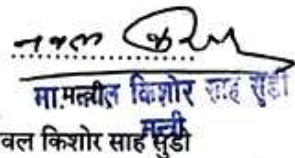 नवल कि
मा. नवल किशोर साह सुडी
मन्त्री
वल किशोर साह सुडी